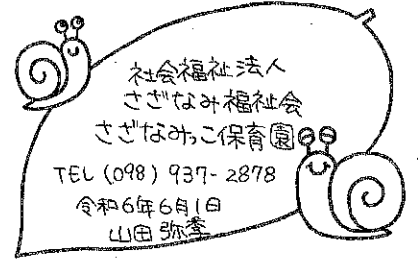 社会福祉法人
さざなみ福祉会
さざなみっこ保育園
TEL (098) 937-2878
令和6年6月1日
山田 弥季